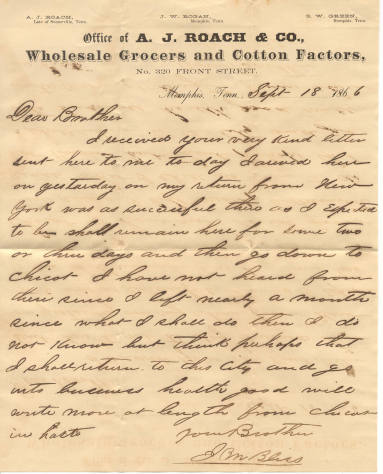 A. J. ROACH, J. W. ROGAN, S. W. GREEN,
Late of Somerville, Tenn. Memphis, Tenn. Memphis, Tenn.
Office of A. J. ROACH & CO.,
Wholesale Grocers and Cotton Factors,
No. 320 FRONT STREET.
Memphis, Tenn., Sept 18 1866
Dear Brother
I received your very kind letter
sent here to me to day I arived here
on yestarday on my return from New
York was as succesful there as I expected
to be shall remain here for some two
or three days and then go down to
chicot I have not heard from
their since I left nearly a month
since what I shall do then I do
not Know but think perhaps that
I shall return to this City and go
into business health good will
write more at length from chicot
in haste your Brother